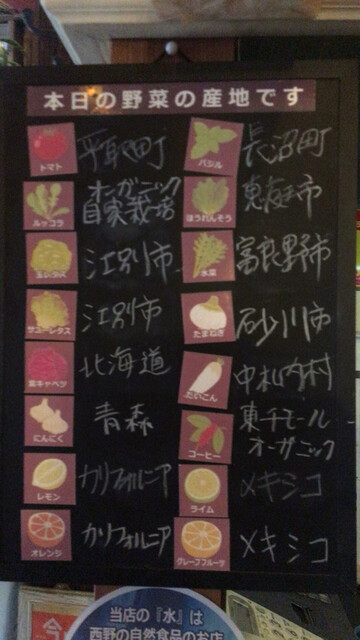 本日の野菜の産地です
トマト 平取町
バジル 長沼町
ルッコラ オーガニック
自家栽培
ほうれんそう 恵庭市
玉レタス 江別市
水菜 富良野市
サニーレタス 江別市
たまねぎ 砂川市
紫キャベツ 北海道
だいこん 中札内村
にんにく 青森
コーヒー 東チモール
オーガニック
レモン カリフォルニア
ライム メキシコ
オレンジ カリフォルニア
グレープフルーツ メキシコ
当店の『水』は
西野の自然食品のお店